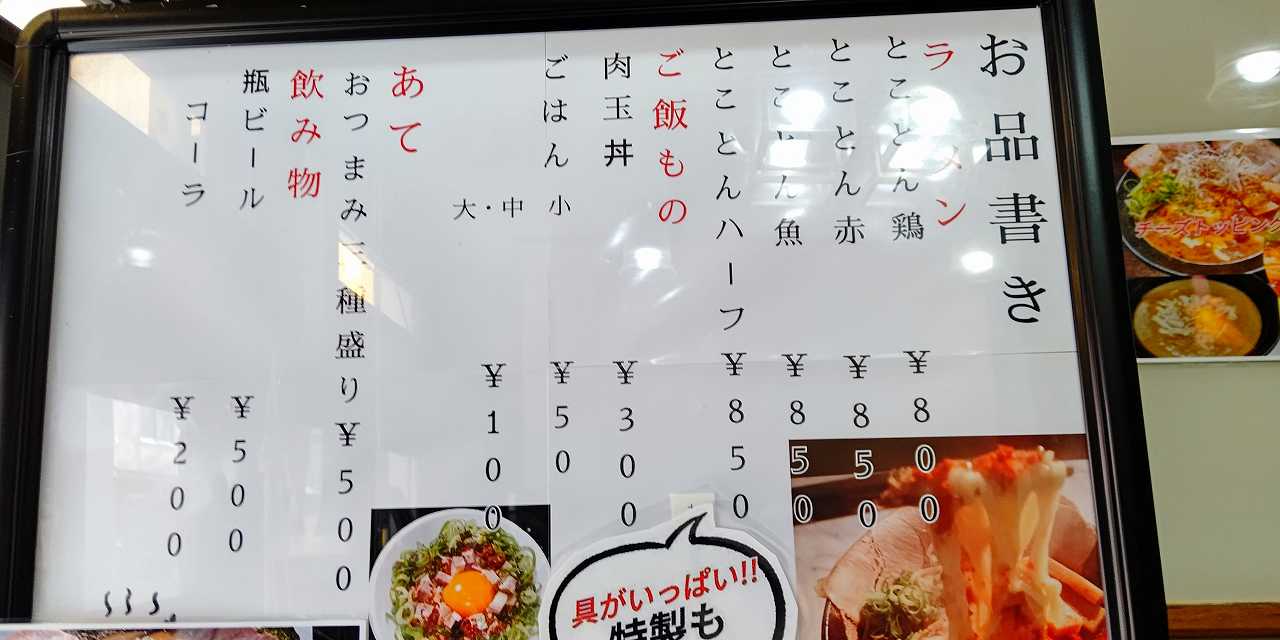 お品書き
ラーメン
とことん鶏 ¥800
とことん赤 ¥850
とことん魚 ¥850
とことんハーフ ¥850
ご飯もの
肉玉丼 ¥300
ごはん 小 ¥50
大・中 ¥100
あて
おつまみ三種盛り ¥500
飲み物
瓶ビール ¥500
コーラ ¥200
具がいっぱい!!
特製も
チーズトッピング